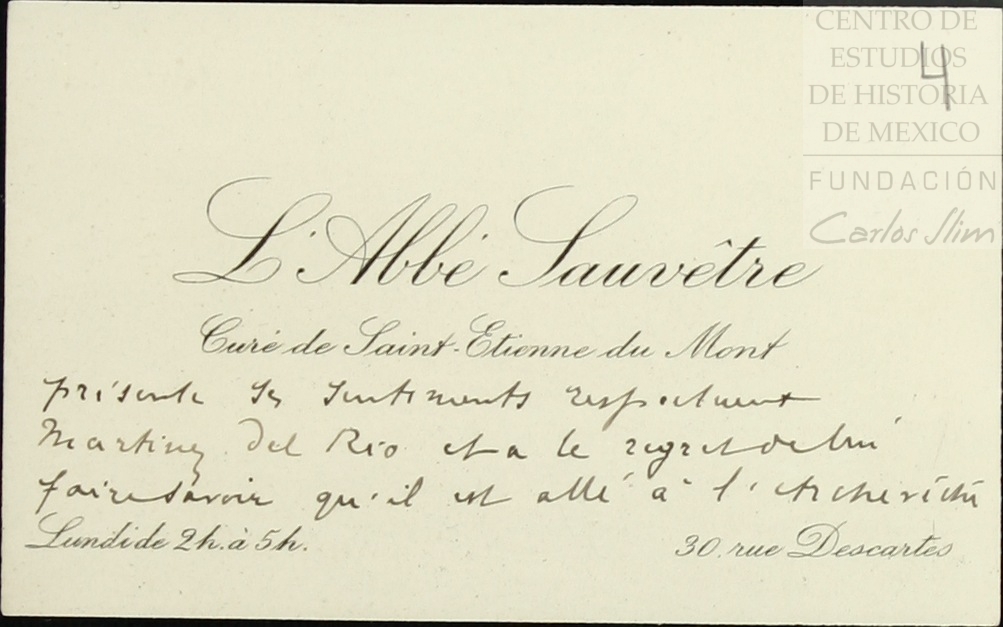 CENTRO DE
ESTUDIOS
DE HISTORIA
DE MEXICO
FUNDACIÓN
Carlos Slim
4
L'Abbé Sauvêtre
Curé de Saint-Etienne du Mont
présente ses sentiments
Martinez Del Rio et a le regret de lui
faire savoir qu'il est allé à l'Archevêché
Lundi de 2h. à 5h.
30, rue Descartes